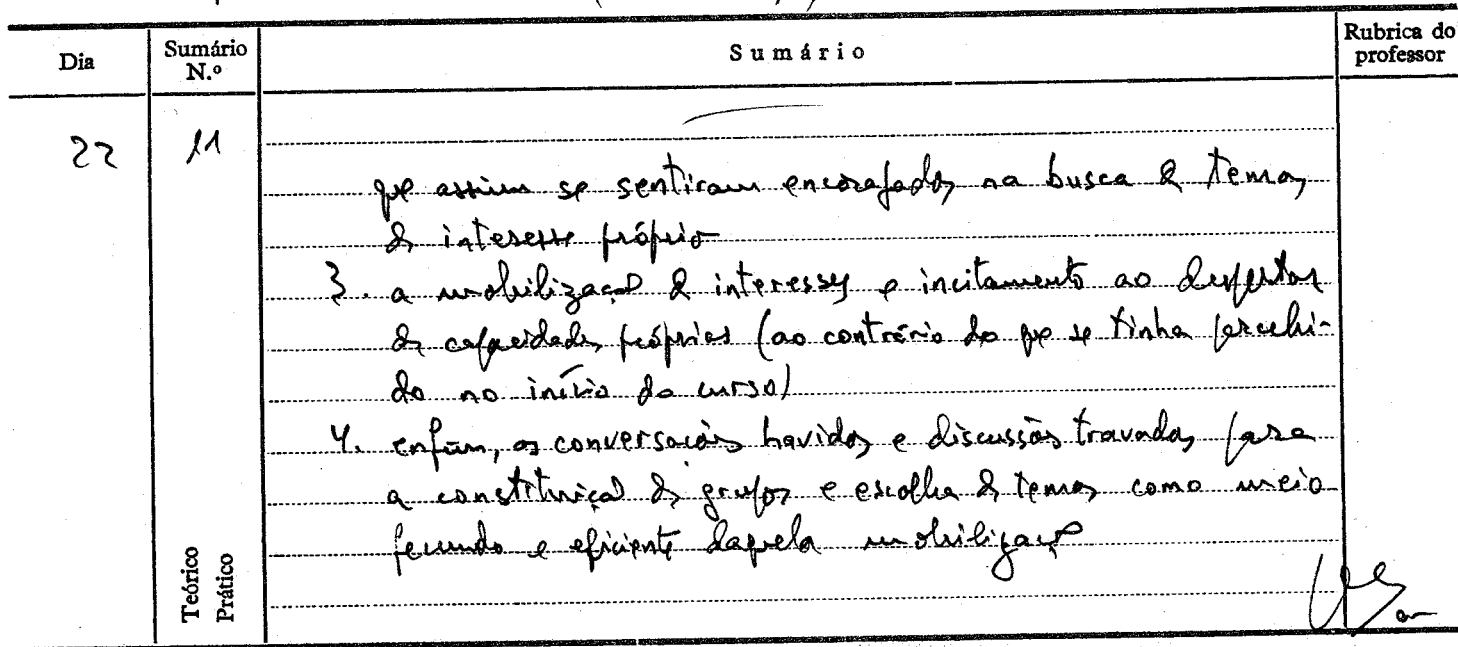 Dia Sumário N.º Sumário Rubrica do professor
22 11
que assim se sentiram encorajados na busca de temas
de interesse próprio
3. a mobilização de interesses e incitamento ao despertar
de capacidades próprias (ao contrário do que se tinha percebi-
do no início do curso)
4. enfim, as conversações havidas e discussões travadas para
a constituição de grupos e escolha de temas como meio
fecundo e eficiente daquela mobilização
Teórico
Prático